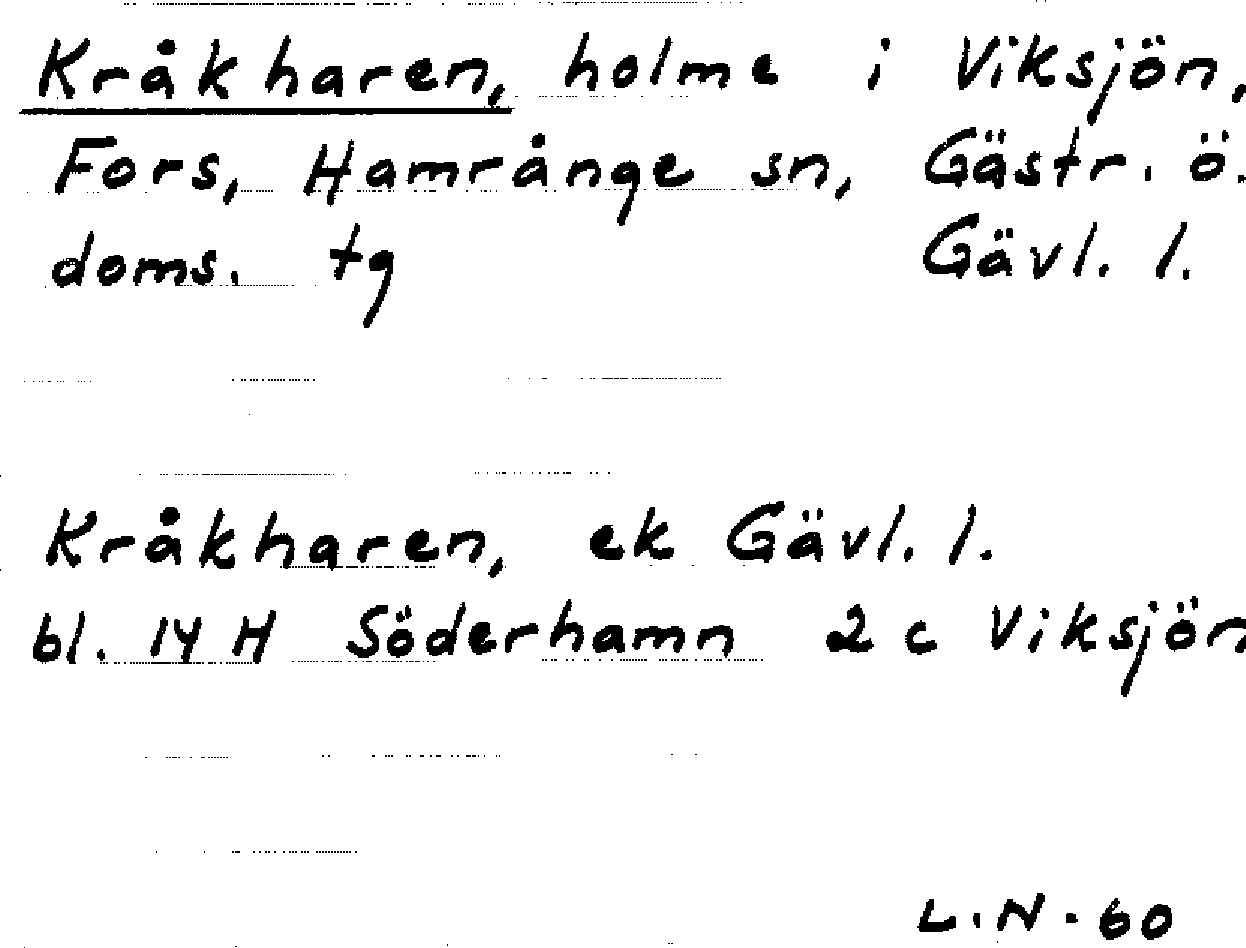 Kråkharen, holme i Viksjön,
Fors, Hamrånge sn, Gästr. ö.
doms. tg Gävl. l.
Kråkharen, ek Gävl. l.
bl. 14 H Söderhamn 2 c Viksjön
L.N. 60